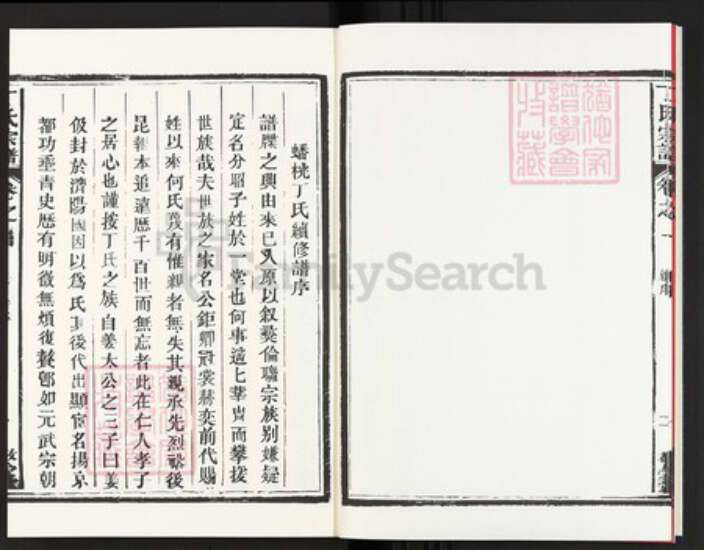 蟠桃丁氏續修譜序
譜牒之興由來已久原以叙彝倫聯宗族别嫌疑
定名分昭子姓於一堂也何事遠七葉貴而攀援
世族哉夫世族之家名公鉅卿冠裳赫奕前代賜
姓以來何氏蔑有惟親者無失其親承先烈裕後
昆報本追遠歷千百世而無忘者此在仁人孝子
之居心也謹按丁氏之族自姜太公之三子曰姜
伋封於濟陽國因以為氏其後代出顯宦名揚京
都功垂青史歷有明徵無煩復贅即如元武宗朝
丁氏宗譜
卷之一
丁氏宗譜
卷之一
二
譜學會
收藏
FamilySearch